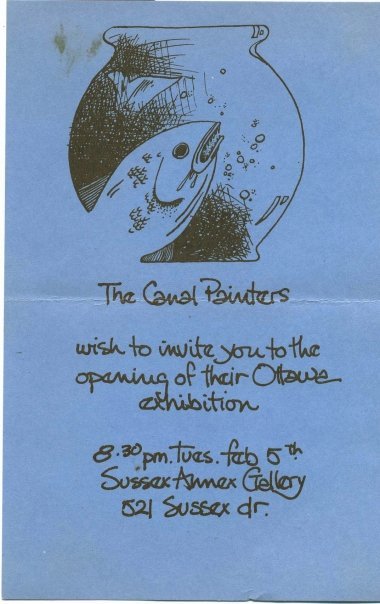 The Canal Painters
wish to invite you to the
opening of their Ottawa
exhibition
8.30 pm. Tues. feb 5th
Sussex Annex Gallery
521 Sussex dr.